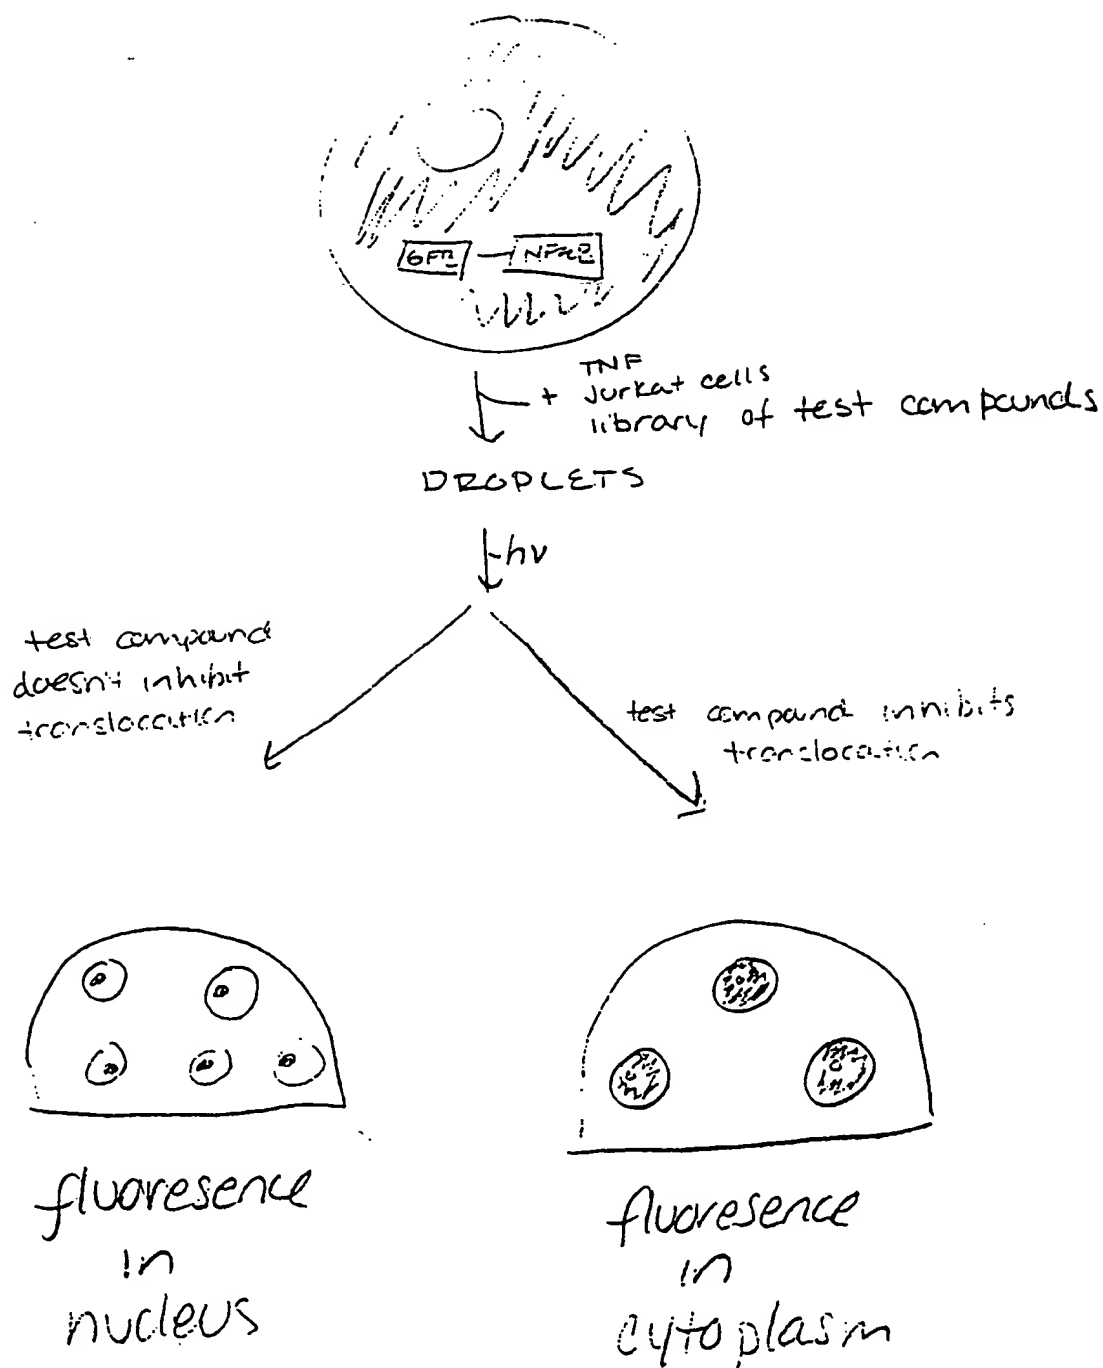 GFP
NFκB
+ TNF
Jurkat cells
library of test compounds
DROPLETS
hν
test compound
doesn't inhibit
translocation
test compound inhibits
translocation
fluoresence
in
nucleus
fluoresence
in
cytoplasm